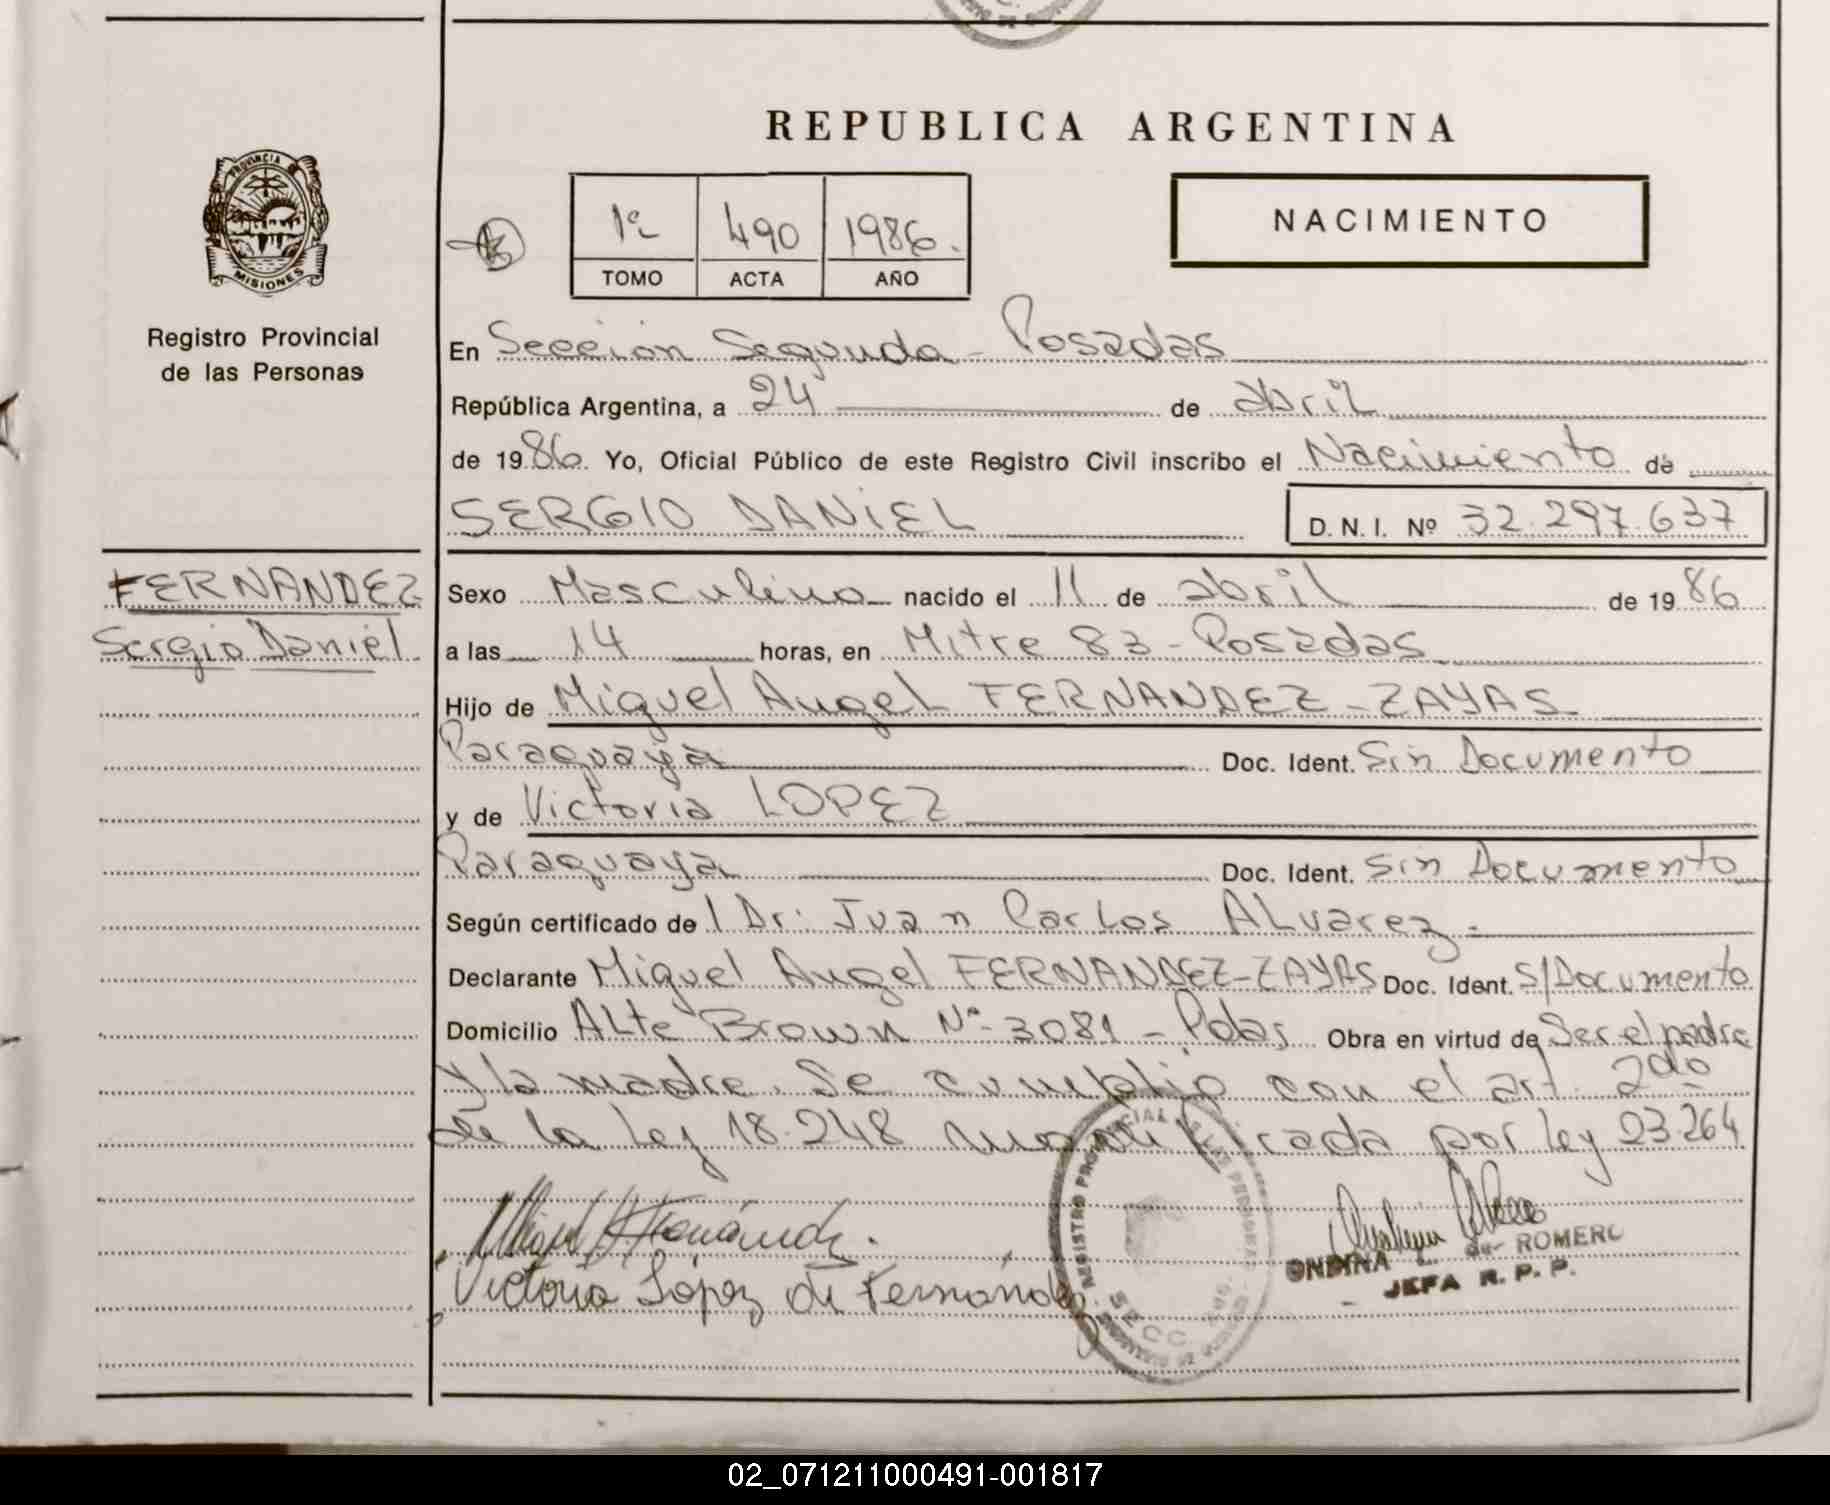 REPUBLICA ARGENTINA
PROVINCIA
MISIONES
Registro Provincial
de las Personas
1º 490 1986.
TOMO ACTA AÑO
NACIMIENTO
En Sección Segunda - Posadas
República Argentina, a 24 de abril
de 1986. Yo, Oficial Público de este Registro Civil inscribo el Nacimiento de
SERGIO DANIEL D. N. I. Nº 32.297.637
FERNANDEZ
Sergio Daniel
Sexo Masculino nacido el 11 de abril de 1986
a las 14 horas, en Mitre 83 - Posadas
Hijo de Miguel Angel FERNANDEZ - ZAYAS
Paraguaya Doc. Ident. Sin Documento
y de Victoria LOPEZ
Paraguaya Doc. Ident. Sin Documento
Según certificado de l Dr: Juan Carlos ALvarez.
Declarante Miguel Angel FERNANDEZ-ZAYAS Doc. Ident. S/Documento
Domicilio ALte Brown Nº 3081 - Pdas Obra en virtud de Ser el padre
y la madre. Se cumplio con el art. 2do
de la Ley 18.248 modificada por Ley 23.264
Victoria López de Fernández
REGISTRO PROVINCIAL DE LAS PERSONAS
SECC
ONDINA de ROMERO
JEFA R. P. P.
02_071211000491-001817